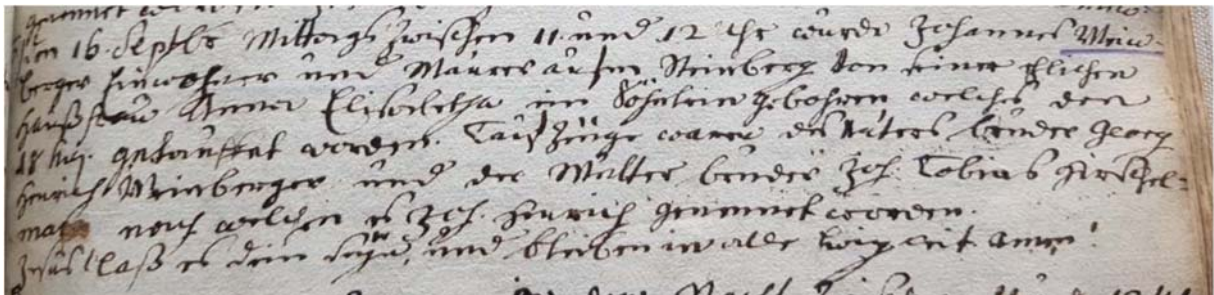 genennet worden
Den 16. Septbr Mittags zwischen 11 und 12 Uhr wurde Johannes Wein-
berger Einwohner und Maurer aufm Steinberg von seiner Ehlichen
Haußfrau Anna Elisabetha ein Söhnlein gebohren welches den
18 huj. getauffet worden. Taufzeuge waren des Vaters bruder Georg
Henrich Weinberger und der Mutter bruder Joh. Tobias Hirschel-
man nach welchen es Joh. Henrich genennet worden.
Jesus laß es dein seyn, und bleiben in alle Ewigkeit Amen!